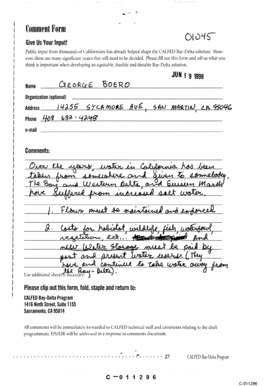 Comment Form
01045
Give Us Your Input!
Public input from thousands of Californians has already helped shape the CALFED Bay-Delta solution. How-
ever, there are many significant issues that still need to be decided. Please fill out this form and tell us what you
think is important when developing an equitable, feasible and durable Bay-Delta solution.
JUN 19 1998
Name GEORGE BOERO
Organization (optional)
Address 14255 SYCAMORE AVE, SAN MARTIN, CA 95046
Phone 408 683-4248
e-mail
Comments:
Over the years, water in California has been
taken from somewhere and given to somebody.
The Bay and Western Delta, and Suisun Marsh
have suffered from increased salt water.
1. Flows must be maintained and enforced
2. Costs for habitat, wildlife, fish, waterfowl,
vegetation, ect. and
new Water Storage must be paid by
past and present water users. (They
have and continue to take water away from
the Bay-Delta).
Use additional sheets if necessary.
Please clip out this form, fold, staple and return to:
CALFED Bay-Delta Program
1416 Ninth Street, Suite 1155
Sacramento, CA 95814
All comments will be immediately forwarded to CALFED technical staff and comments relating to the draft
programmatic EIS/EIR will be addressed in a response to comments document.
27 CALFED Bay-Delta Program
C-011296
C-011296